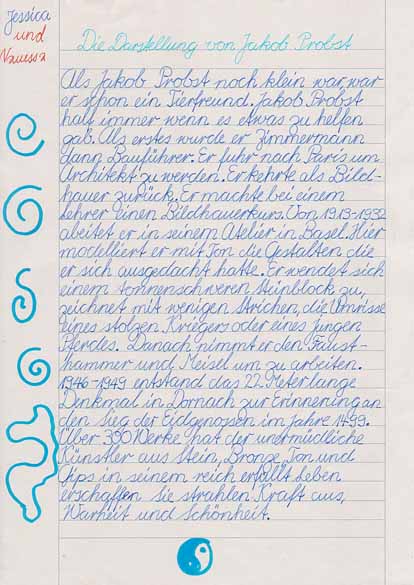 Jessica
und
Vanessa
Die Darstellung von Jakob Probst
Als Jakob Probst noch klein war, war
er schon ein Tierfreund. Jakob Probst
half immer wenn es etwas zu helfen
gab. Als erstes wurde er Zimmermann
dann Bauführer. Er fuhr nach Paris um
Architekt zu werden. Er kehrte als Bild-
hauer zurück. Er machte bei einem
Lehrer einen Bildhauerkurs. Von 1913-1932
abeitet er in seinem Atelier in Basel. Hier
modelliert er mit Ton die Gestalten die
er sich ausgedacht hatte. Er wendet sich
einem tonnenschweren Steinblock zu,
zeichnet mit wenigen Strichen, die Umrisse
eines stolzen Kriegers oder eines jungen
Pferdes. Danach nimmt er den Faust-
hammer und Meisel um zu arbeiten.
1946-1949 entstand das 22 Meter lange
Denkmal in Dornach zur Erinnerung an
den Sieg der Eidgenossen im Jahre 1499.
Über 390 Werke hat der unermüdliche
Künstler aus Stein, Bronze, Ton und
Gips in seinem reich erfüllt Leben
erschaffen Sie strahlen Kraft aus,
Warheit und Schönheit.